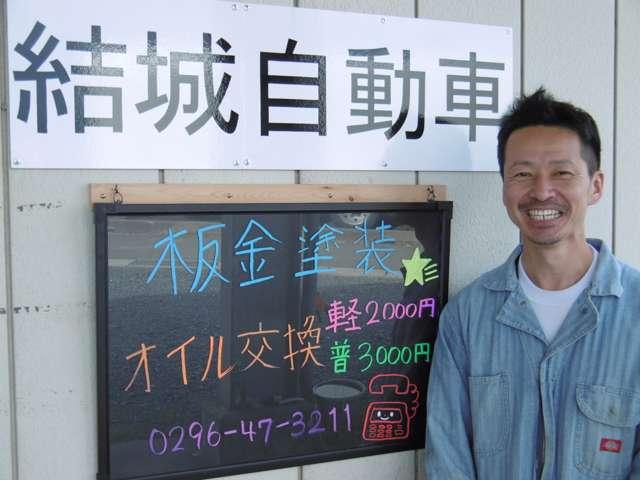 結城自動車
板金塗装
オイル交換 軽2000円
普3000円
0296-47-3211